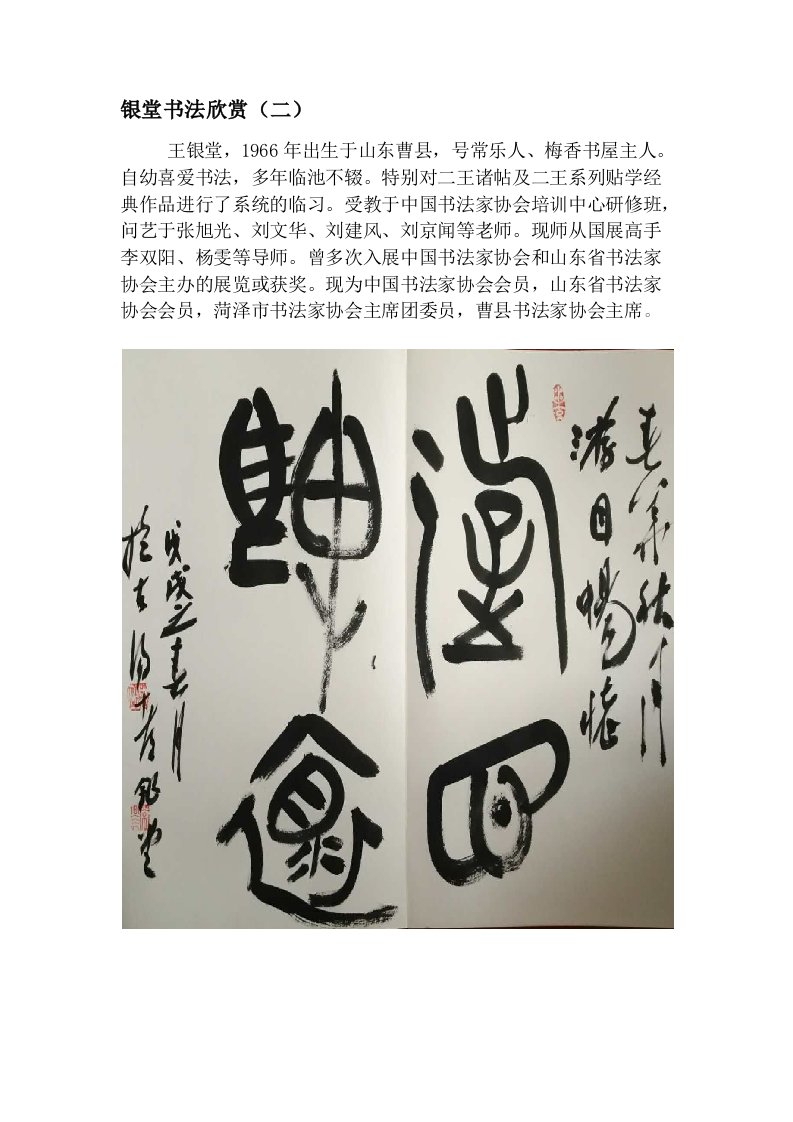 银堂书法欣赏（二）
王银堂，1966 年出生于山东曹县，号常乐人、梅香书屋主人。
自幼喜爱书法，多年临池不辍。特别对二王诸帖及二王系列贴学经
典作品进行了系统的临习。受教于中国书法家协会培训中心研修班，
问艺于张旭光、刘文华、刘建风、刘京闻等老师。现师从国展高手
李双阳、杨雯等导师。曾多次入展中国书法家协会和山东省书法家
协会主办的展览或获奖。现为中国书法家协会会员，山东省书法家
协会会员，菏泽市书法家协会主席团委员，曹县书法家协会主席。
游目暢懷
戊戌之春月